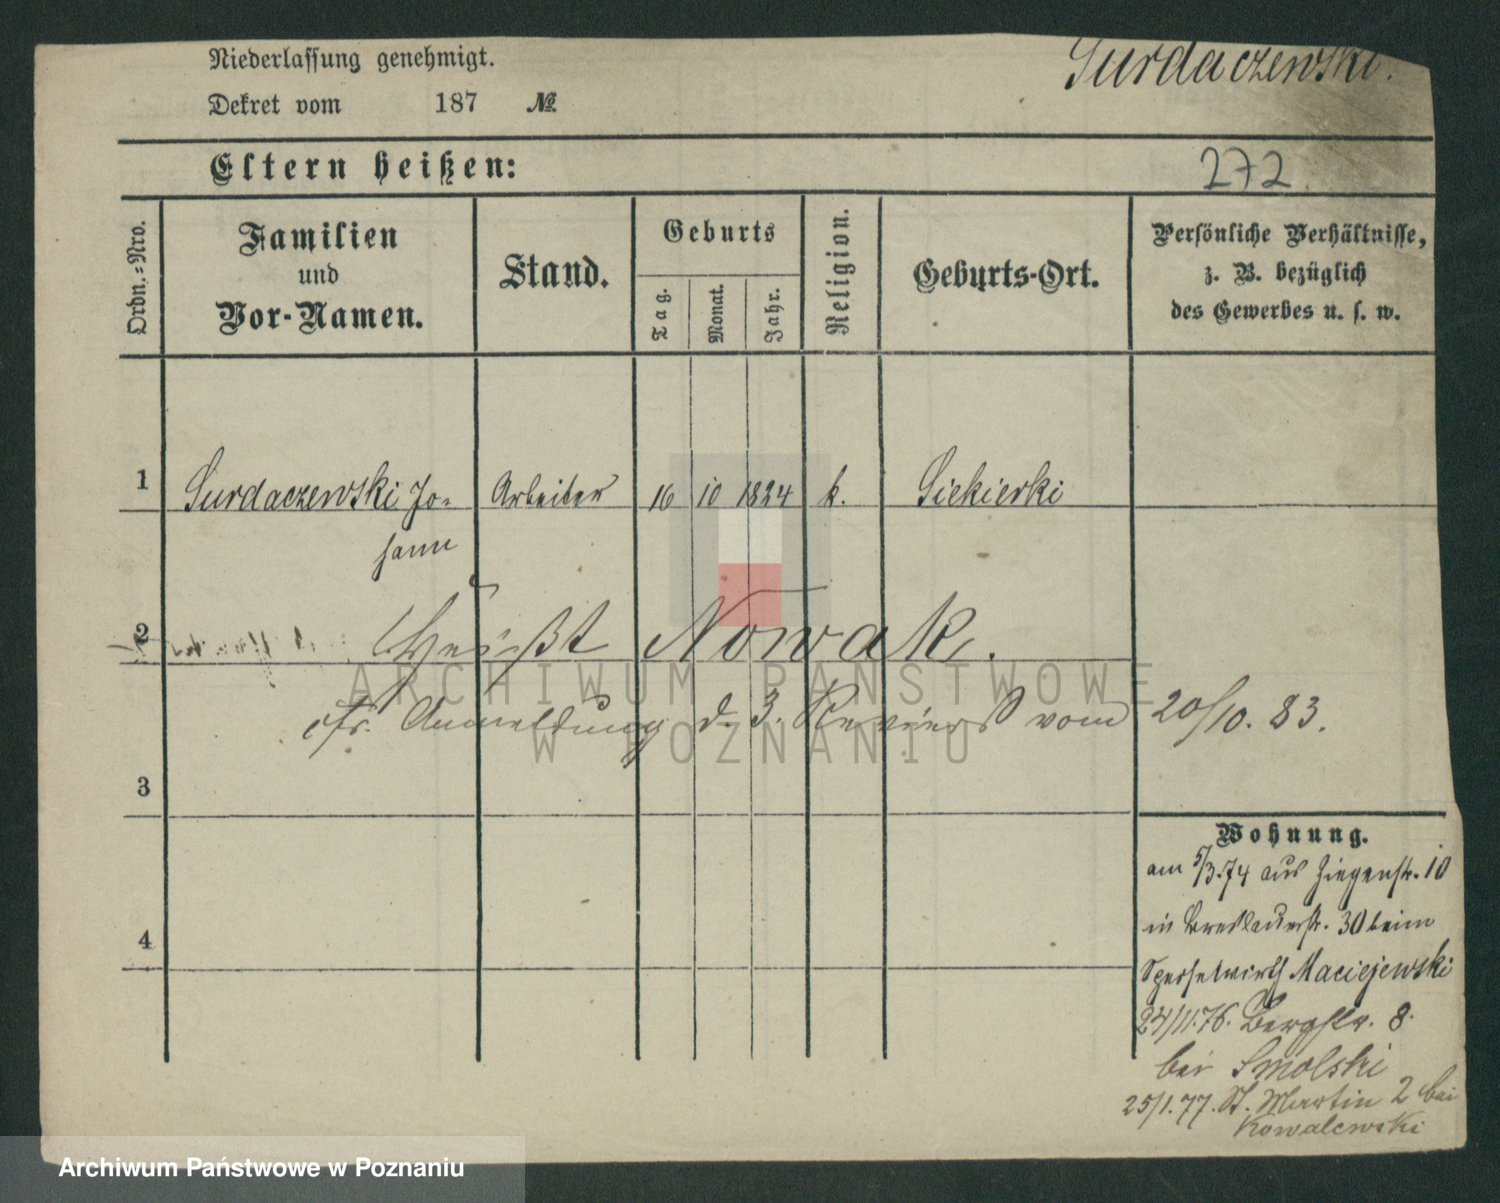 Niederlassung genehmigt.
Surdaczewski.
Dekret vom 187 №
Eltern heißen:
272
Ordn.-Nro.
Familien
und
Vor-Namen.
Stand.
Geburts
Tag.
Monat.
Jahr.
Religion.
Geburts-Ort.
Persönliche Verhältnisse,
z. B. bezüglich
des Gewerbes u. s. w.
1 Surdaczewski Jo- Arbeiter 16 10 1824 k. Siekierki
hann
2 Heißt Nowak.
cfr. Anmeldung d. 3. Reviers vom 20/10. 83.
3
4
Wohnung.
am 5/3.74 aus Ziegenstr. 10
in Breslauerstr. 30 beim
Maciejewski
24/11.76. Bergstr. 8.
bei Smolski
25/1.77. St. Martin 2 bei
Kowalewski
ARCHIWUM PAŃSTWOWE
W POZNANIU
Archiwum Państwowe w Poznaniu